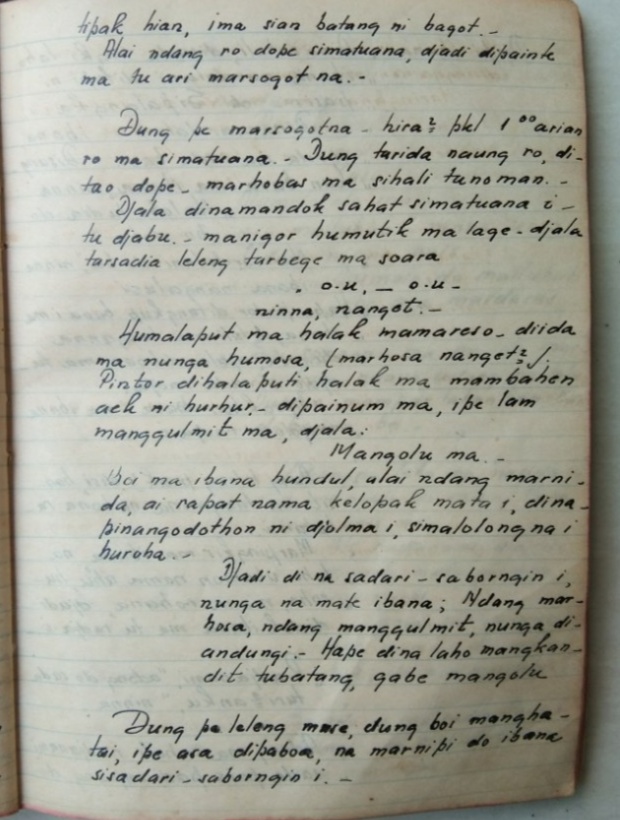 tipak hian, ima sian batang ni bagot.-
Alai ndang ro dope simatuana, djadi dipainte
ma tu ari marsogot na.-
Dung pe marsogotna - hira² pkl 1°° arian
ro ma simatuana.- Dung tarida naung ro, di-
tao dope - marhobas ma sihali tanoman.-
Djala dinamandok sahat simatuana i -
tu djabu.- manigor humutik ma lage - djala
tarsadia leleng tarbege ma soara
" o-u, - o-u -
ninna, nanget.-
Humalaput ma halak mamareso - diida
ma nunga humosa, (marhosa nanget²).
Pintor dihalaputi halak ma mambahen
aek ni hurhur - dipainum ma, ipe lam
manggulmit ma, djala:
Mangolu ma.-
Boi ma ibana hundul, alai ndang marni-
da, ai rapat nama kelopak mata i, dina-
pinangodothon ni djolma i, simalolong na i
huroha.-
Djadi di na sadari - saborngin i,
nunga na mate ibana; Ndang mar-
hosa, ndang manggulmit, nunga di-
andungi.- Hape dina laho mangkan-
dit tubatang, gabe mangolu
Dung pe leleng muse, dung boi mangha-
tai, ipe asa dipaboa, na marnipi do ibana
sisadari - saborngin i.-